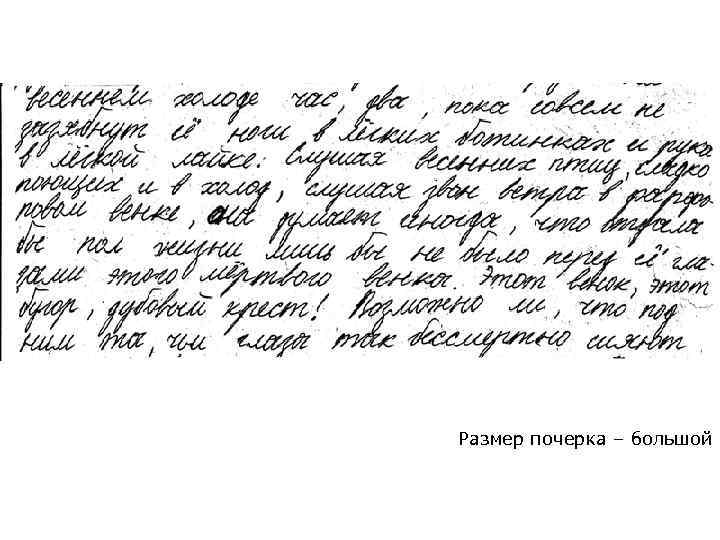 весеннем холоде час, два, пока совсем не
зазябнут её ноги в лёгких ботинках и рука
в лёгкой лайке. Слушая весенних птиц, сладко
поющих и в холод, слушая звон ветра в фарфо-
ровом венке, она думает иногда, что отдала
бы пол жизни лишь бы не было перед её гла-
зами этого мёртвого венка. Этот венок, этот
бугор, дубовый крест! Возможно ли, что под
ним та, чьи глаза так бессмертно сияют
Размер почерка – большой